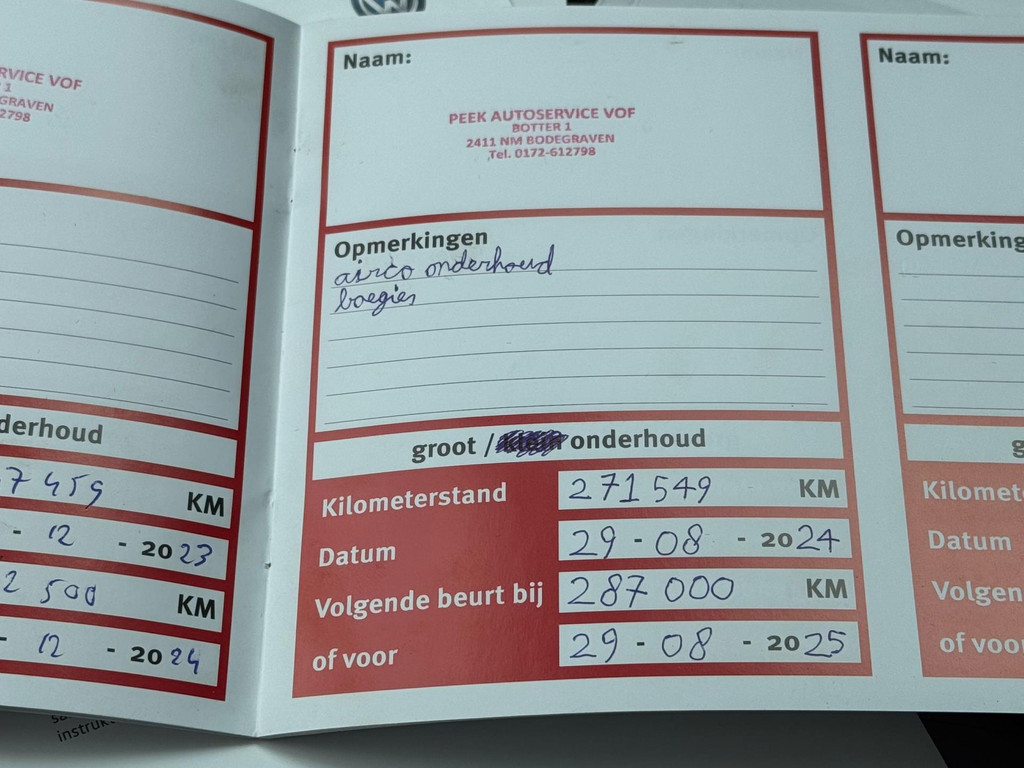 RVICE VOF
1
GRAVEN
2798
derhoud
7 459 KM
- 12 - 2023
2 500 KM
- 12 - 2024
Naam:
PEEK AUTOSERVICE VOF
BOTTER 1
2411 NM BODEGRAVEN
Tel. 0172-612798
Opmerkingen
airco onderhoud
boegies
groot / klein onderhoud
Kilometerstand 271 549 KM
Datum 29 - 08 - 2024
Volgende beurt bij 287 000 KM
of voor 29 - 08 - 2025
Naam:
Opmerking
g
Kilomet
Datum
Volgen
of voor
instruk